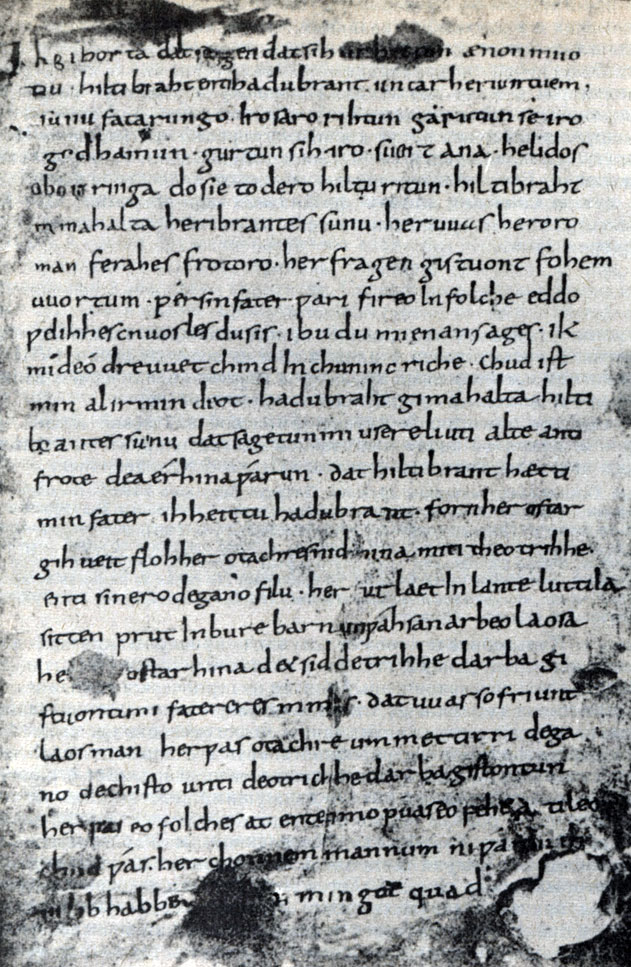 gihorta dat seggen dat sih urhettun ænon muo
tin · hiltibraht enti hadubrant · untar heriun tuem,
sunu fatarungo · iro saro rihtun garutun se iro
gudhamun · gurtun sih · iro · suert ana · helidos
ringa do sie to dero hiltu ritun · hiltibraht
mahalta heribrantes sunu · her uuas heroro
man ferahes frotoro · her fragen gistuont fohem
uuortum · ƿer sin fater ƿari fireo In folche eddo
ƿelihhes cnuosles du sis · ibu du mi enan sages · ik
mideo dre uuet chind In chunincriche · chud ist
min al irmindeot · hadubraht gimahalta hilti
brantes sunu dat sagetun mi usere liuti alte anti
frote dea érhina ƿarun · dat hiltibrant hætti
min fater · ih heittu hadubrant · forn her ostar
gihueit floh her otachres nid hina miti theotrihhe ·
enti sinero degano filu · her laet In lante luttila
sitten prut In bure barn unƿahsan arbeo laosa
he ostar hina d& sid detrihhe darba gi
stuontum fatereres mines · dat uuas so friunt
laos man her ƿas otachre ummettirri dega
no dechisto unti deotrichhe darba gistontun
her ƿas eo folches at ente imo ƿuas eo feh&a ti leop
chud ƿas her chonnem mannum ni ƿaniu ih
lib habbe min got quad